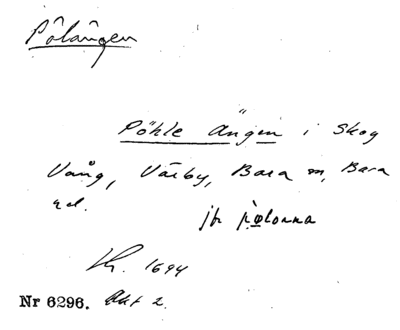 Pölängen
Pöhle Ängen i Skog
Vång, Värby, Bara sn, Bara
hd. jfr pølorna
1694
Nr 6296. Akt 2.